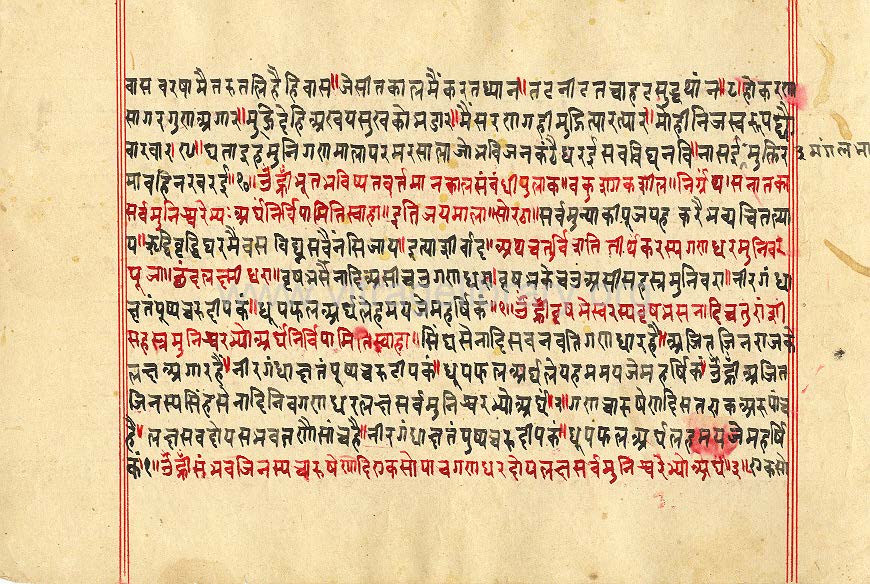 वास वरषामै तरुतलि है हिवास॥जेसीतकालमैं करतध्यान॥तटनीटतचाहटसुद्दथांन॥८॥होकरुणा
सागरगुणअगार॥मुद्दिदेहिअखयसुखकोभंडार॥मैंसरणगहीमुद्दित्यारत्यार॥मोहीनिजस्वरूपद्यौ
वारवार॥९॥घता॥इहमुनिगणमालापरमरसालाजोभविजनकंठैधरई॥सवविघनवि॥नासई मुक्तिर मंगलभा
मावहिनरवरई॥१०॥ॐह्रीँभूतभविष्यतवर्तमानकालसंबंधीपुलाक॥वकुशकशील॥निर्ग्रंथ॥सनातका
सर्वमुनिश्चरेभ्यः॥अर्घंनिर्विपामितिस्वाहा॥इतिजयमाला॥सोरठा॥सर्वमुन्याकीपूजयह करैभव्यचितल्या
य॥रुद्दिवृद्दिघरमैवस विघ्नसवैनसिजाय॥इत्याशीर्वाद॥अथचतुर्विंशति तीर्थंकरस्यगणधरमुनिवर
पूजा॥छंदलक्ष्मीधरा॥वृषभसैनादिअसीचवगणधरा॥वृषभकेचउंअसीसहस्रमुनिवरा॥नीरगंधा
क्षतंपुष्पचरुदीपकं॥धूपफलअर्घलेहमयजैमहर्षिकं॥१॥ॐह्रीँवृषभेस्वरस्यवृषभसेनादिचतुराशी
सहस्रमुनिश्चरेभ्योअर्घंनिर्विपामितिस्वाहा॥सिंघसेनादिसवनवतिगणधारहै॥अजितजिनराजके
लक्षअगारहै॥नीरगंधाक्षतंपुष्पचरुदीपकं॥धूपफलअर्घलेयहममयजेमहर्षिकं॥ॐह्रीँअजित
जिनस्यसिंहसेनादिनिवगणधरलक्षसर्वमुनिश्चरेभ्योअर्घं॥२॥गणचारुषेणादिसतएकअरुपांच
है॥लक्षसवदोयसंभवतणैसांचहै॥नीरगंधाक्षतंपुष्पचरुदीपकं॥धूपफलअर्घलेहमयजेमहर्षि
कं॥१॥ॐह्रीँसंभवजिनस्यचारुषेणादिएकसोपाचगणधरदोयलक्षसर्वमुनिश्चरेभ्योअर्घं॥३॥एकसो
www.vitragelibrary.org